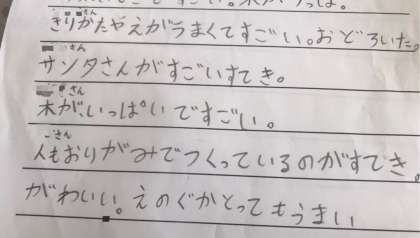 きりかたやえがうまくてすごい。おどろいた。
さん
サンタさんがすごいすてき。
さん
木が、いっぱいですごい。
さん
人もおりがみでつくっているのがすてき。
がわいい。えのぐかとってもうまい